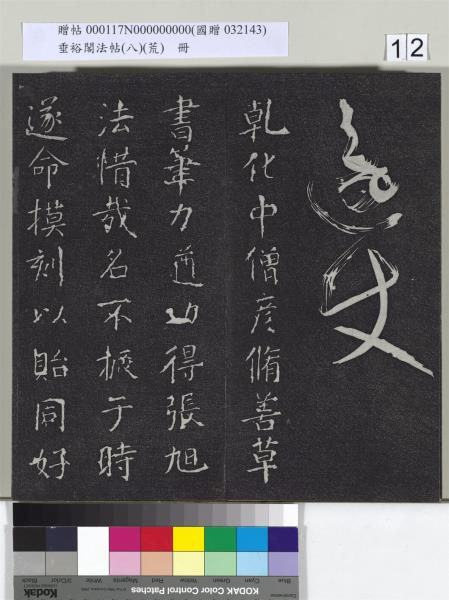 贈帖 000117N000000000(國贈 032143)
垂裕閣法帖(八)(荒) 冊
12
乹化中僧彦脩善草
書筆力遒功得張旭
法惜哉名不振于時
遂命摸刻以貽同好
Blue Cyan Green Yellow Red Magenta White 3/Color Black
Kodak
KODAK Color Control Patches